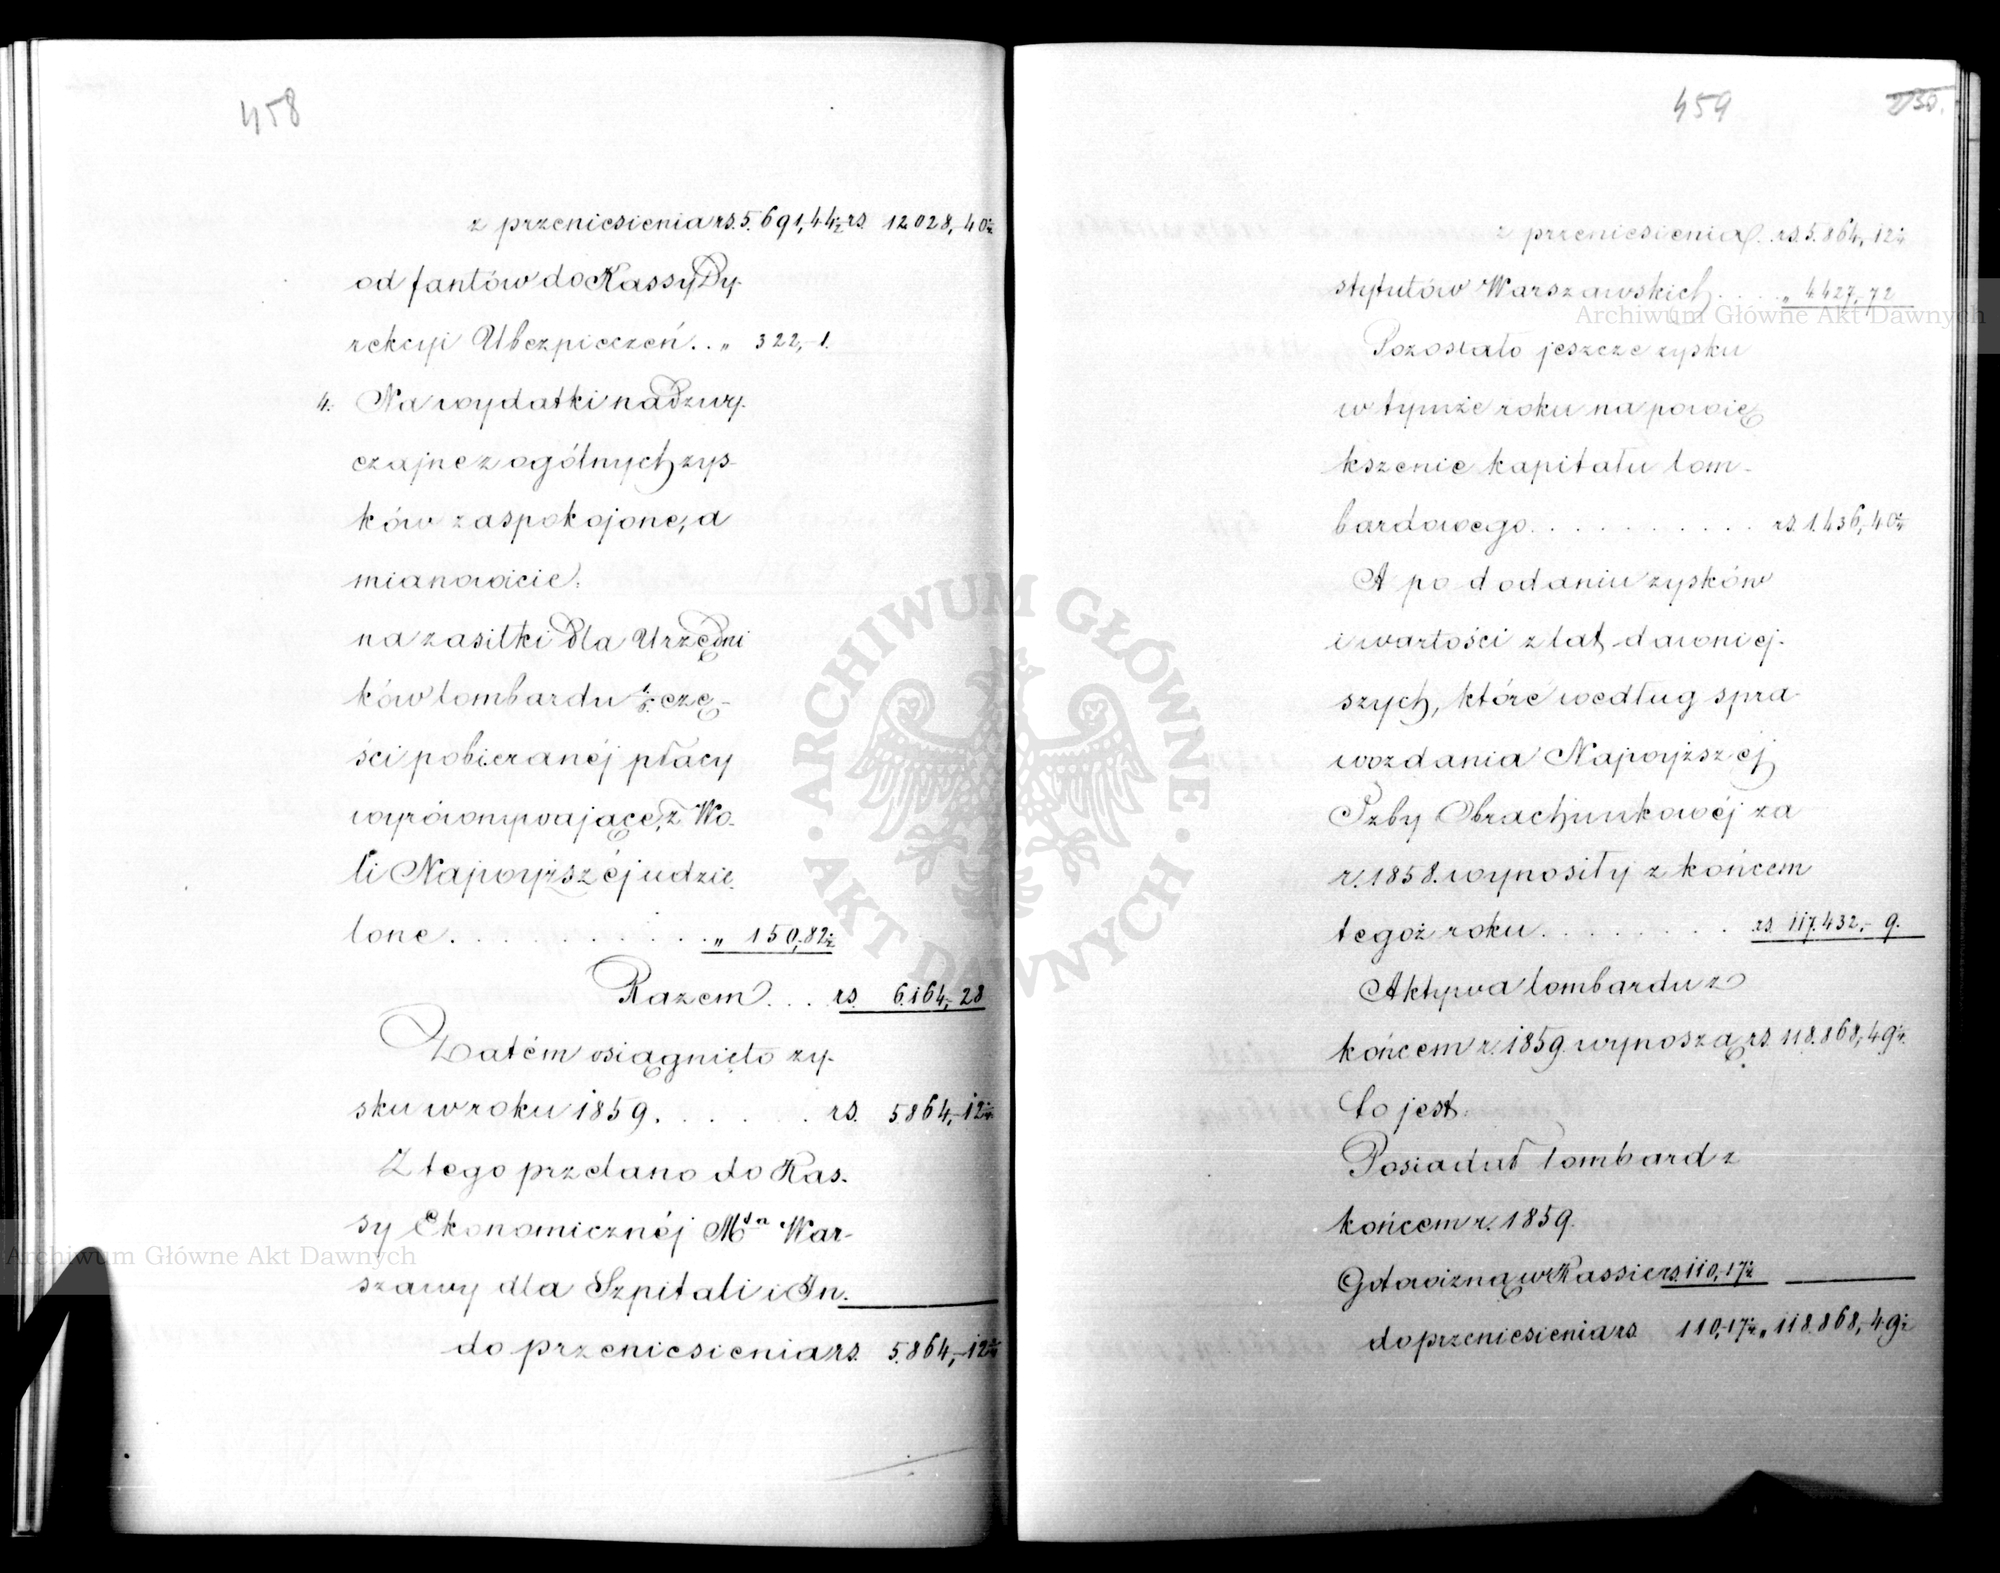 458
z przeniesienia rs. 5.691,44½ rs. 12.028,-40½
od fantów do Kassy Dy-
rekcyi Ubezpieczeń . . „ 322,-1.
4. Na wydatki nadzwy-
czajne z ogólnych zys-
ków zaspokojone, a
mianowicie:
na zasiłki dla Urzędni
ków lombardu 1/6 czę-
ści pobieranéj płacy
wyrównywające, z Wo-
li Najwyższéj udzie-
lone . . . . . . . . . . „ 150,-82½
Razem . . . rs. 6.164,-28
Zatém osiągnięto zy-
sku w roku 1859. . . . . . rs. 5.864,-12½
Z tego przelano do Kas-
sy Ekonomicznéj Mta War-
szawy dla Szpitali i In-
do przeniesienia rs. 5.864,-12½
459
z przeniesienia . rs. 5.864,-12½
stytutów Warszawskich . . . . „ 4.427,-72
Pozostało jeszcze zysku
w tymże roku na powię
kszenie kapitału lom-
bardowego . . . . . . . . . . rs. 1.436,-40½
A po dodaniu zysków
i wartości z lat dawniej-
szych, które według spra-
wozdania Najwyższéj
Izby Obrachunkowéj za
r. 1858. wynosiły z końcem
tegoż roku . . . . . . . . rs. 117.432,-9.
Aktywa lombardu z
końcem r. 1859. wynoszą rs. 118.868,-49½
to jest:
Posiadał lombard z
końcem r. 1859.
Gotowizną w Kassie rs. 110,-17½
do przeniesienia rs. 110,-17½ „ 118.868,-49½
Archiwum Główne Akt Dawnych
Archiwum Główne Akt Dawnych
ARCHIWUM GŁÓWNE
AKT DAWNYCH